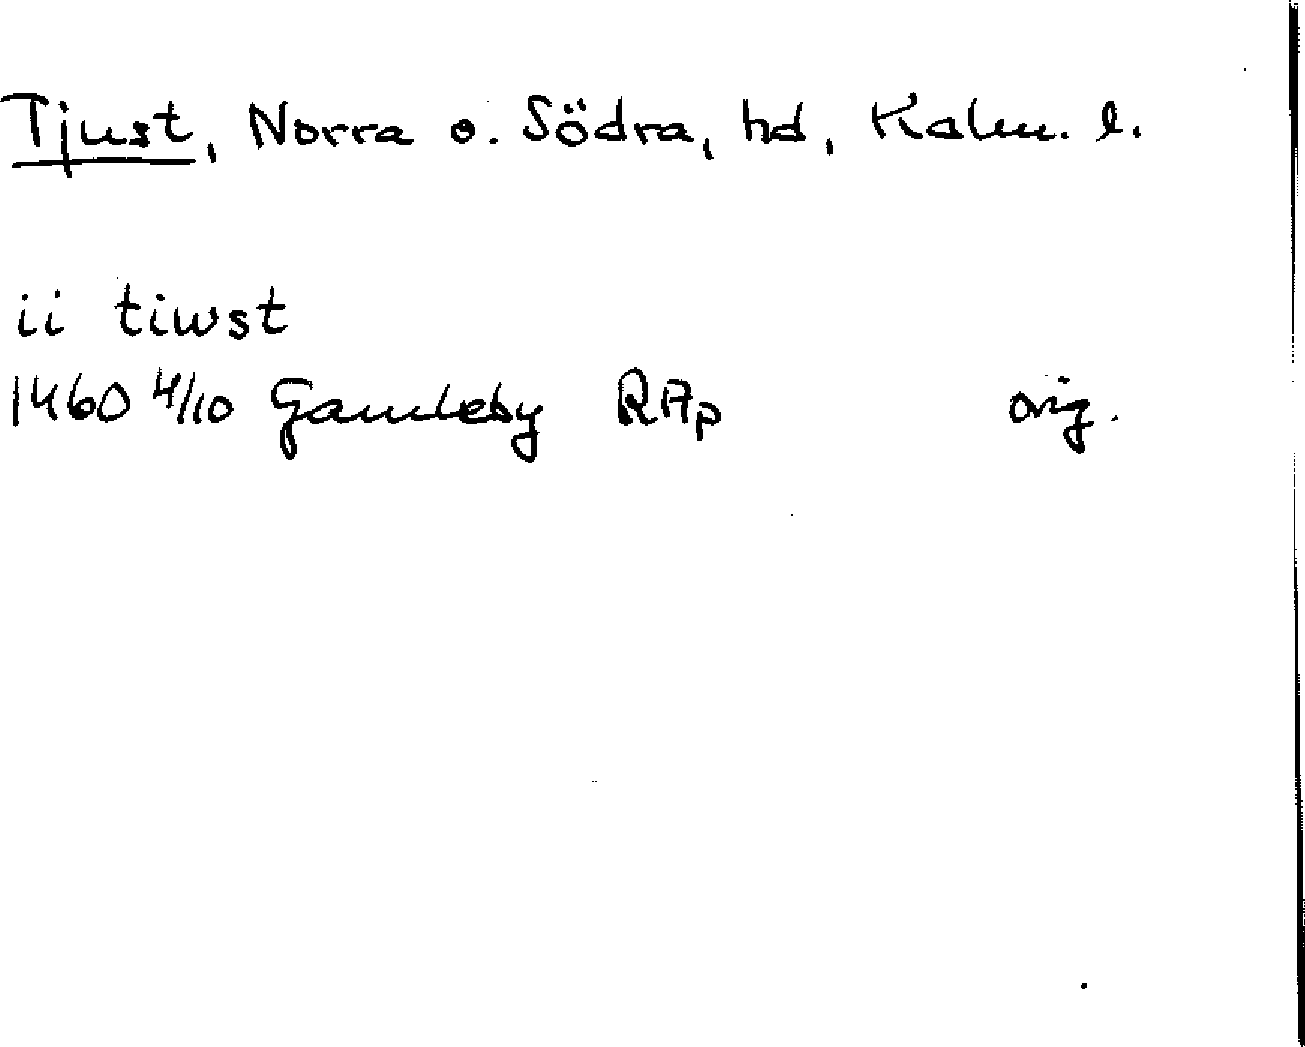 Tjust, Norra o. Södra, hd, Kalm. l.
ii tiwst
1460 4/10 Gamleby RAp orig.